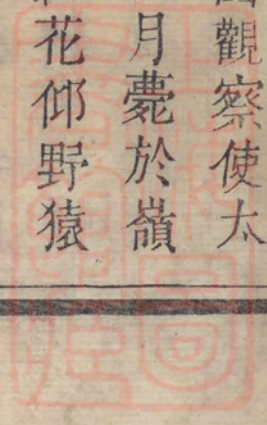 觀察使太
月薨於嶺
花仰野猿